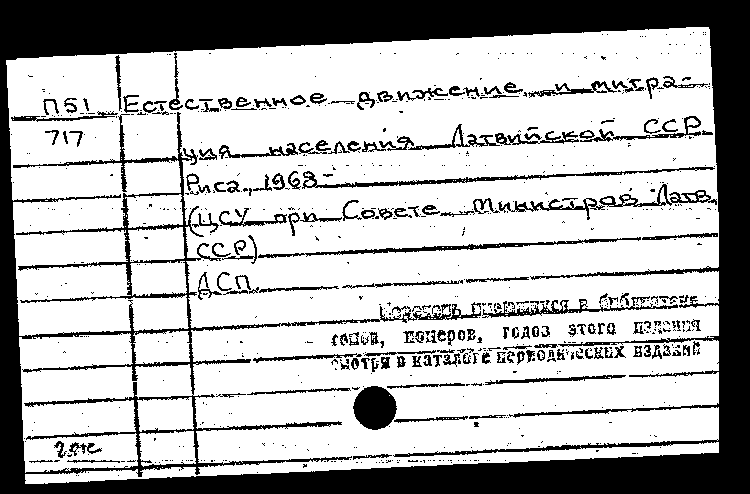 П51 Естественное движение и мигра-
717
ция населения Латвийской ССР
Рига, 1968-
(ЦСУ при Совете Министров Латв.
ССР)
ДСП.
Перечень имеющихся в библиотеке
томов, номеров, годов этого издания
смотри в каталоге периодических изданий